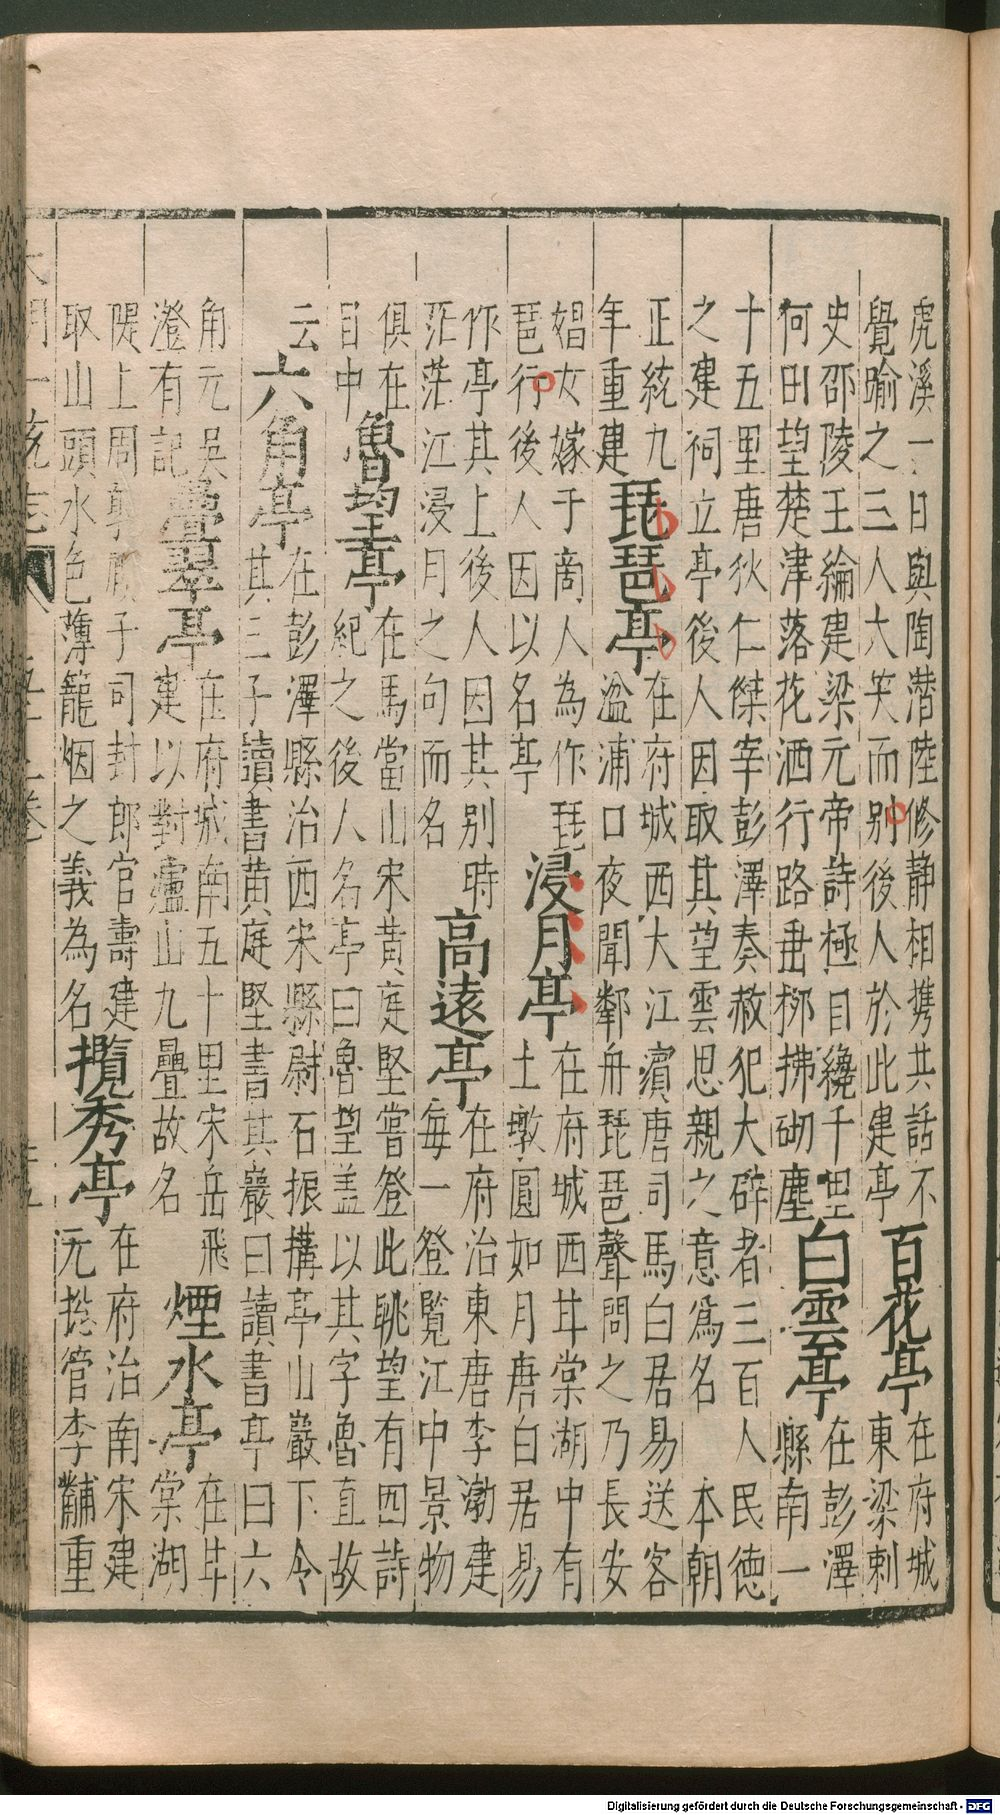 虎溪一日與陶潛陸修靜相携共話不
覺踰之三人大笑而別後人於此建亭
百花亭
在府城
東梁刺
史邵陵王綸建梁元帝詩極目纔千里
何由望楚津落花洒行路垂栁拂砌塵
白雲亭
在彭澤
縣南一
十五里唐狄仁傑宰彭澤奏赦犯大辟者三百人民德
之建祠立亭後人因取其望雲思親之意為名 本朝
正統九
年重建
琵琶亭
在府城西大江濵唐司馬白居易送客
湓浦口夜聞鄰舟琵琶聲問之乃長安
娼女嫁于商人為作琵
琶行後人因以名亭
浸月亭
在府城西甘棠湖中有
土墩圓如月唐白居易
作亭其上後人因其别時
茫茫江浸月之句而名
高遠亭
在府治東唐李渤建
每一登覽江中景物
俱在
目中
魯望亭
在馬當山宋黄庭堅嘗登此眺望有四詩
紀之後人名亭曰魯望盖以其字魯直故
云
六角亭
在彭澤縣治西宋縣尉石振搆亭山巖下令
其三子讀書黄庭堅書其巖曰讀書亭曰六
角元吳
澄有記
疊翠亭
在府城南五十里宋岳飛
建以對廬山九疊故名
煙水亭
在甘
棠湖
隄上周敦頤子司封郎官壽建
取山頭水色薄籠烟之義為名
攬秀亭
在府治南宋建
元揔管李黼重
大明一統志
Digitalisierung gefördert durch die Deutsche Forschungsgemeinschaft - DFG